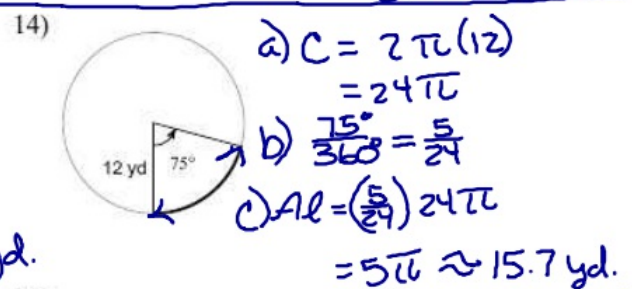 14)
12 yd
75°
a) C = 2π(12)
= 24π
b) 75°/360° = 5/24
c) Al = (5/24) 24π
= 5π ≈ 15.7 yd.